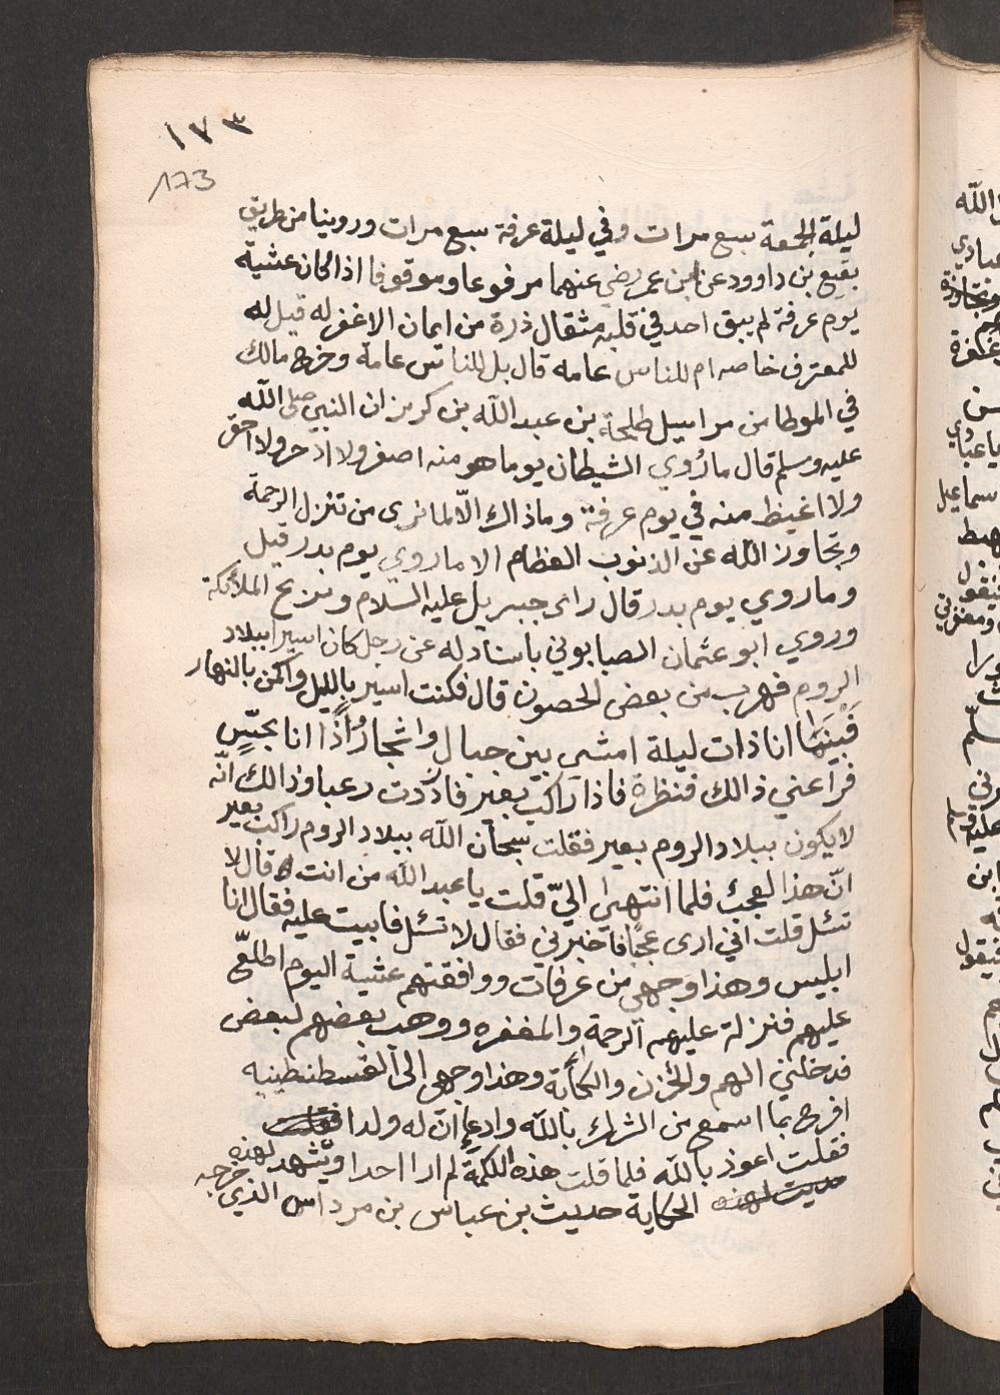 ١٧٣
173
ليلة الجمعة سبع مرات وفي ليلة عرفة سبع مرات وروينا من طريق
بقيع بن داوود عن ابن عمر رضي عنهما مرفوعا وموقوفا اذا كان عشية
يوم عرفة لم يبق احد في قلبه مثقال ذرة من ايمان الا غفر له قيل له
للمعترف خاصه ام للناس عامه قال بل للناس عامة وخرج مالك
في الموطا من مراسيل طلحة بن عبد الله بن كريز ان النبي صلى الله
عليه وسلم قال ما رُوي الشيطان يوما هو منه اصغر ولا ادحر ولا احقر
ولا اغيظ منه في يوم عرفة وما ذاك الّا لما يرى من تنزل الرحمة
وتجاوز الله عن الذنوب العظام الا ما روي يوم بدر قيل
وما روي يوم بدر قال راى جبريل عليه السلام وهو يزع الملائكة
وروي ابو عثمان الصابوني باسناد له عن رجل كان اسيرا ببلاد
الروم فهرب من بعض الحصون قال فكنت اسير بالليل واكمن بالنهار
فَبَيْنَما انا ذات ليلة امشي بين جبال واشجار اذا انا بحسٍّ
فراعني ذالك فنظرة فاذا راكب بعير فازددت رعبا وذالك انّه
لا يكون ببلاد الروم بعير فقلت سبحان الله ببلاد الروم راكب بعير
انّ هذا لعجبٌ فلما انتهى اليّ قلت يا عبد الله من انت قال لا
تسئل قلت اني ارى عجبًا فاخبرني فقال لا تسئل فابيت عليه فقال انا
ابليس وهذا وجهي من عرفات ووافقتهم عشية اليوم اطلع
عليهم فنزلة عليهم الرحمة والمغفره ووهب بعضهم لبعض
فدخلني الهم والحزن والكأبة وهذا وجهي الى القسطنطينيه
افرح بما اسمع من الشرك بالله وادعاء انّ له ولدا فقلت
فقلت اعوذ بالله فلما قلت هذه الكلمة لم ارا احدا ويشهد لهذه
حديث لهذه الحكاية حديث بن عباس بن مرداس الذي خرجه